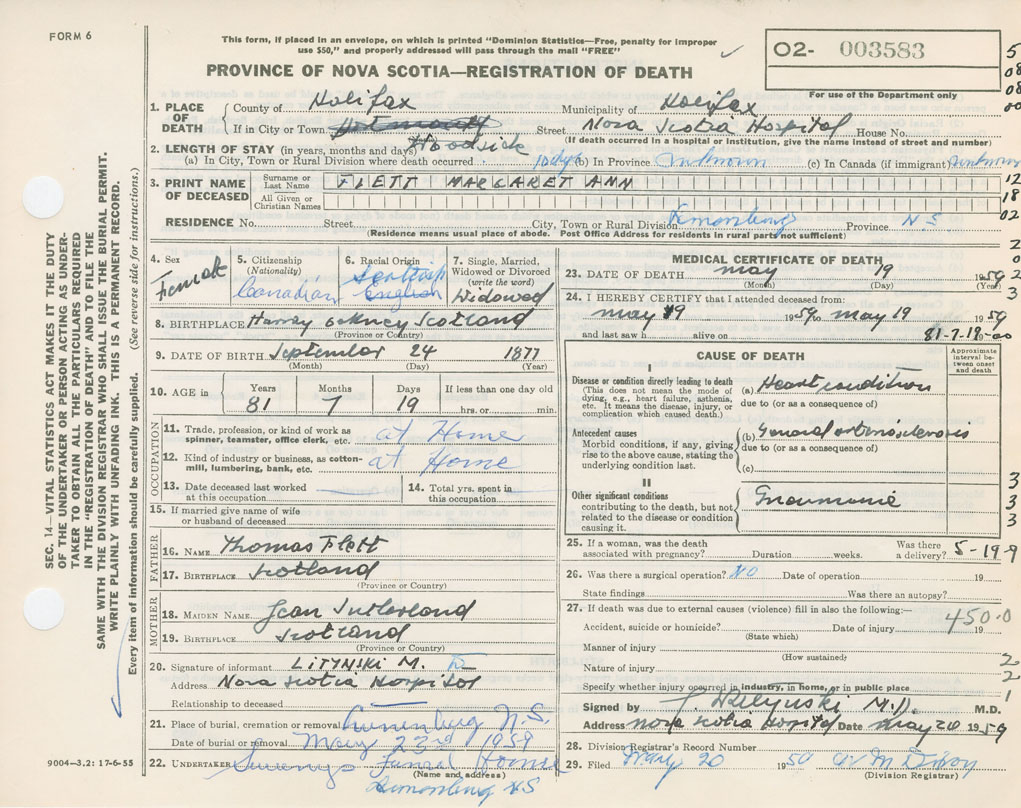 FORM 6
This form, if placed in an envelope, on which is printed "Dominion Statistics—Free, penalty for improper
use $50," and properly addressed will pass through the mail "FREE"
O2- 003583
For use of the Department only
PROVINCE OF NOVA SCOTIA—REGISTRATION OF DEATH
1. PLACE OF DEATH
County of Halifax Municipality of Halifax
If in City or Town Woodside Street Nova Scotia Hospital House No.
(If death occurred in a hospital or institution, give the name instead of street and number)
2. LENGTH OF STAY (in years, months and days)
(a) In City, Town or Rural Division where death occurred 10 dys (b) In Province Unknown (c) In Canada (if immigrant) Unknown
3. PRINT NAME OF DECEASED
Surname or Last Name FLETT MARGARET ANN
All Given or Christian Names
RESIDENCE No. Street City, Town or Rural Division Lunenburg Province N S
(Residence means usual place of abode. Post Office Address for residents in rural parts not sufficient)
4. Sex Female
5. Citizenship (Nationality) Canadian
6. Racial Origin Scottish English
7. Single, Married, Widowed or Divorced (write the word) Widowed
8. BIRTHPLACE Harray Orkney Scotland
(Province or Country)
9. DATE OF BIRTH September 24 1877
(Month) (Day) (Year)
10. AGE in Years Months Days If less than one day old
81 7 19 hrs. or min.
OCCUPATION
11. Trade, profession, or kind of work as spinner, teamster, office clerk, etc. at Home
12. Kind of industry or business, as cotton-mill, lumbering, bank, etc. at Home
13. Date deceased last worked at this occupation
14. Total yrs. spent in this occupation
15. If married give name of wife or husband of deceased
FATHER
16. NAME Thomas Flett
17. BIRTHPLACE Scotland
(Province or Country)
MOTHER
18. MAIDEN NAME Jean Sutherland
19. BIRTHPLACE Scotland
(Province or Country)
20. Signature of informant LITYNSKI M.
Address Nova Scotia Hospital
Relationship to deceased
21. Place of burial, cremation or removal Lunenburg N.S.
Date of burial or removal May 23rd 1959
22. UNDERTAKER Sweenys Funeral Home
(Name and address)
Lunenburg NS
9004—3.2: 17-6-55
MEDICAL CERTIFICATE OF DEATH
23. DATE OF DEATH May 19 1959
(Month) (Day) (Year)
24. I HEREBY CERTIFY that I attended deceased from:
May 19 1959 to May 19 1959
and last saw h alive on 19
81-7-19-00
CAUSE OF DEATH
Approximate interval between onset and death
I
Disease or condition directly leading to death
(This does not mean the mode of dying, e.g., heart failure, asthenia, etc. It means the disease, injury, or complication which caused death.)
(a) Heart condition
due to (or as a consequence of)
Antecedent causes
Morbid conditions, if any, giving rise to the above cause, stating the underlying condition last.
(b) General arteriosclerosis
due to (or as a consequence of)
(c)
II
Other significant conditions contributing to the death, but not related to the disease or condition causing it.
Pneumonia
25. If a woman, was the death associated with pregnancy? Duration weeks. Was there a delivery?
5-19-9
26. Was there a surgical operation? NO Date of operation 19
State findings Was there an autopsy?
27. If death was due to external causes (violence) fill in also the following:—
450.0
Accident, suicide or homicide? Date of injury 19
(State which)
Manner of injury
(How sustained?
Nature of injury
Specify whether injury occurred in industry, in home, or in public place
Signed by M.D. M.D.
Address Nova Scotia Hospital Date May 20 1959
28. Division Registrar's Record Number
29. Filed May 20 1959
(Division Registrar)
SEC. 14—VITAL STATISTICS ACT MAKES IT THE DUTY
OF THE UNDERTAKER OR PERSON ACTING AS UNDER-
TAKER TO OBTAIN ALL THE PARTICULARS REQUIRED
IN THE "REGISTRATION OF DEATH" AND TO FILE THE
SAME WITH THE DIVISION REGISTRAR WHO SHALL ISSUE THE BURIAL PERMIT.
WRITE PLAINLY WITH UNFADING INK. THIS IS A PERMANENT RECORD.
Every item of information should be carefully supplied. (See reverse side for instructions.)